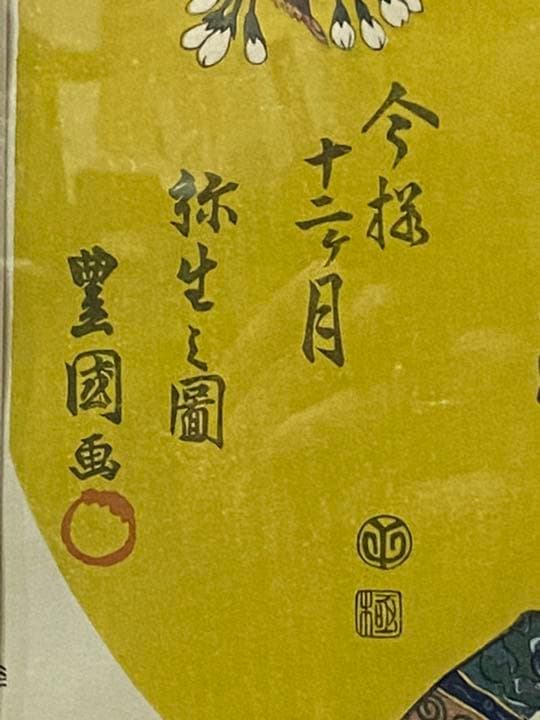 今様
十二ヶ月
弥生之圖
豊國画
極